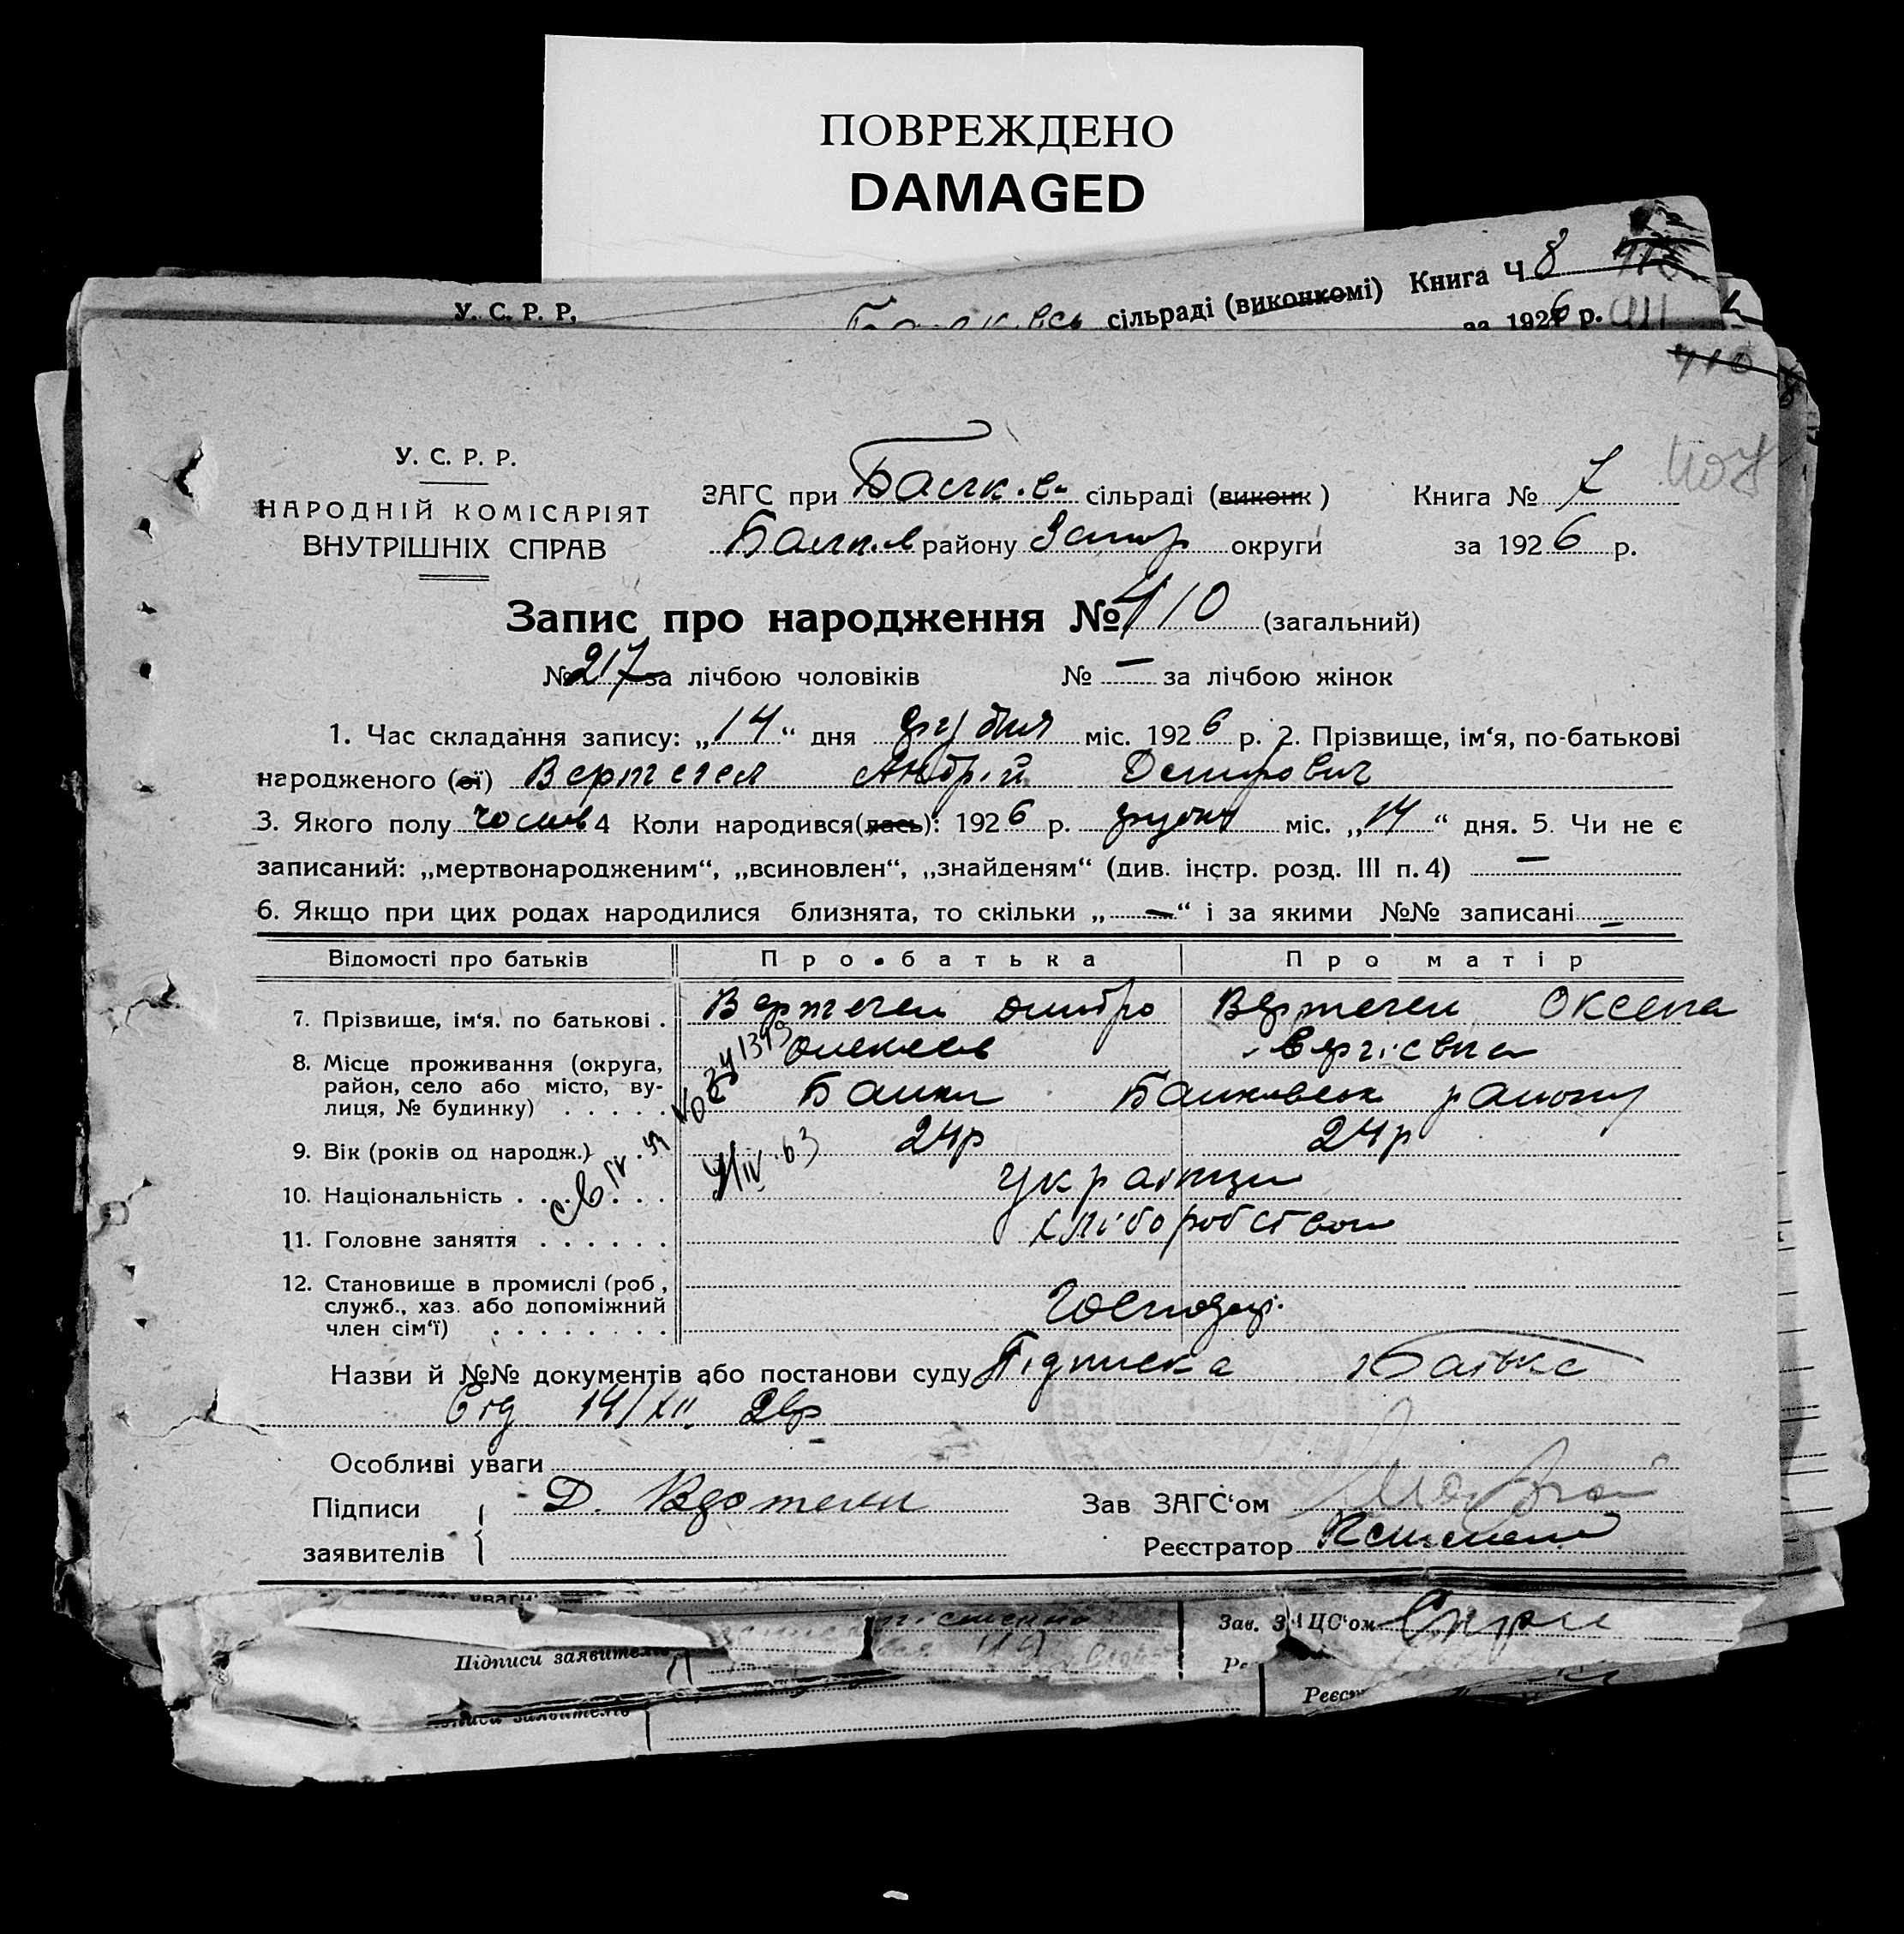 ПОВРЕЖДЕНО
DAMAGED
У. С. Р. Р,
сільраді (виконкомі) Книга Ч 8
за 1926 р.
410
У. С. Р. Р.
НАРОДНІЙ КОМІСАРІЯТ
ВНУТРІШНІХ СПРАВ
ЗАГС при Балк.в- сільраді (виконк) Книга № 7
Балк.в району Запор округи за 1926 р.
Запис про народження № 410 (загальний)
№ 217 за лічбою чоловіків № — за лічбою жінок
1. Час складання запису: „14“ дня грудня міс. 1926 р. 2. Прізвище, ім‘я, по-батькові
народженого (ої) Вертегел Андрій Дмитрович
3. Якого полу чолов 4 Коли народився(лась): 1926 р. грудня міс. „14“ дня. 5. Чи не є
записаний: „мертвонародженим“, „всиновлен“, „знайденям“ (див. інстр. розд. III п. 4) —
6. Якщо при цих родах народилися близнята, то скільки „—“ і за якими №№ записані —
Відомості про батьків Про батька Про матір
7. Прізвище, ім‘я. по батькові . Вертегел Дмитро Вертегел Оксена
Олексієв Сергіевна
8. Місце проживання (округа,
район, село або місто, ву-
лиця, № будинку) . . . . . Балки Балковськ району
9. Вік (років од народж.) 24р 24р
10. Національність . . . . . . Українці
11. Головне заняття . . . . . . хліборобством
12. Становище в промислі (роб,
служб., хаз. або допоміжний
член сім‘ї) . . . . . . . . Господарі
Назви й №№ документів або постанови суду Підписка батька
від 14/XII 26р
Особливі уваги
Підписи
заявителів
Д. Вертегел
Зав ЗАГС‘ом
Реєстратор
уваги
Підписи заявителів
Зав. ЗАЦС‘ом
Реєс